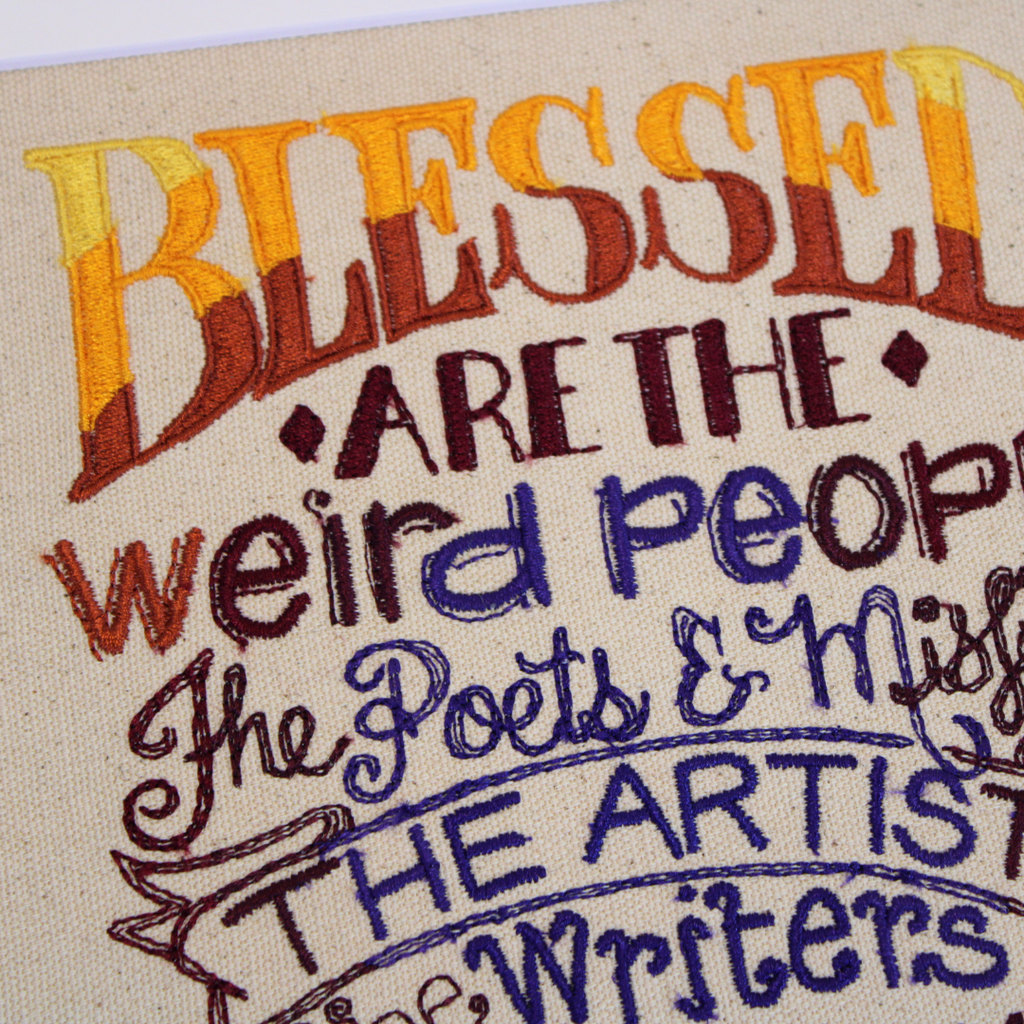 BLESSED
ARE THE
weird PEOP
The Poets & Misf
THE ARTIST
Writers